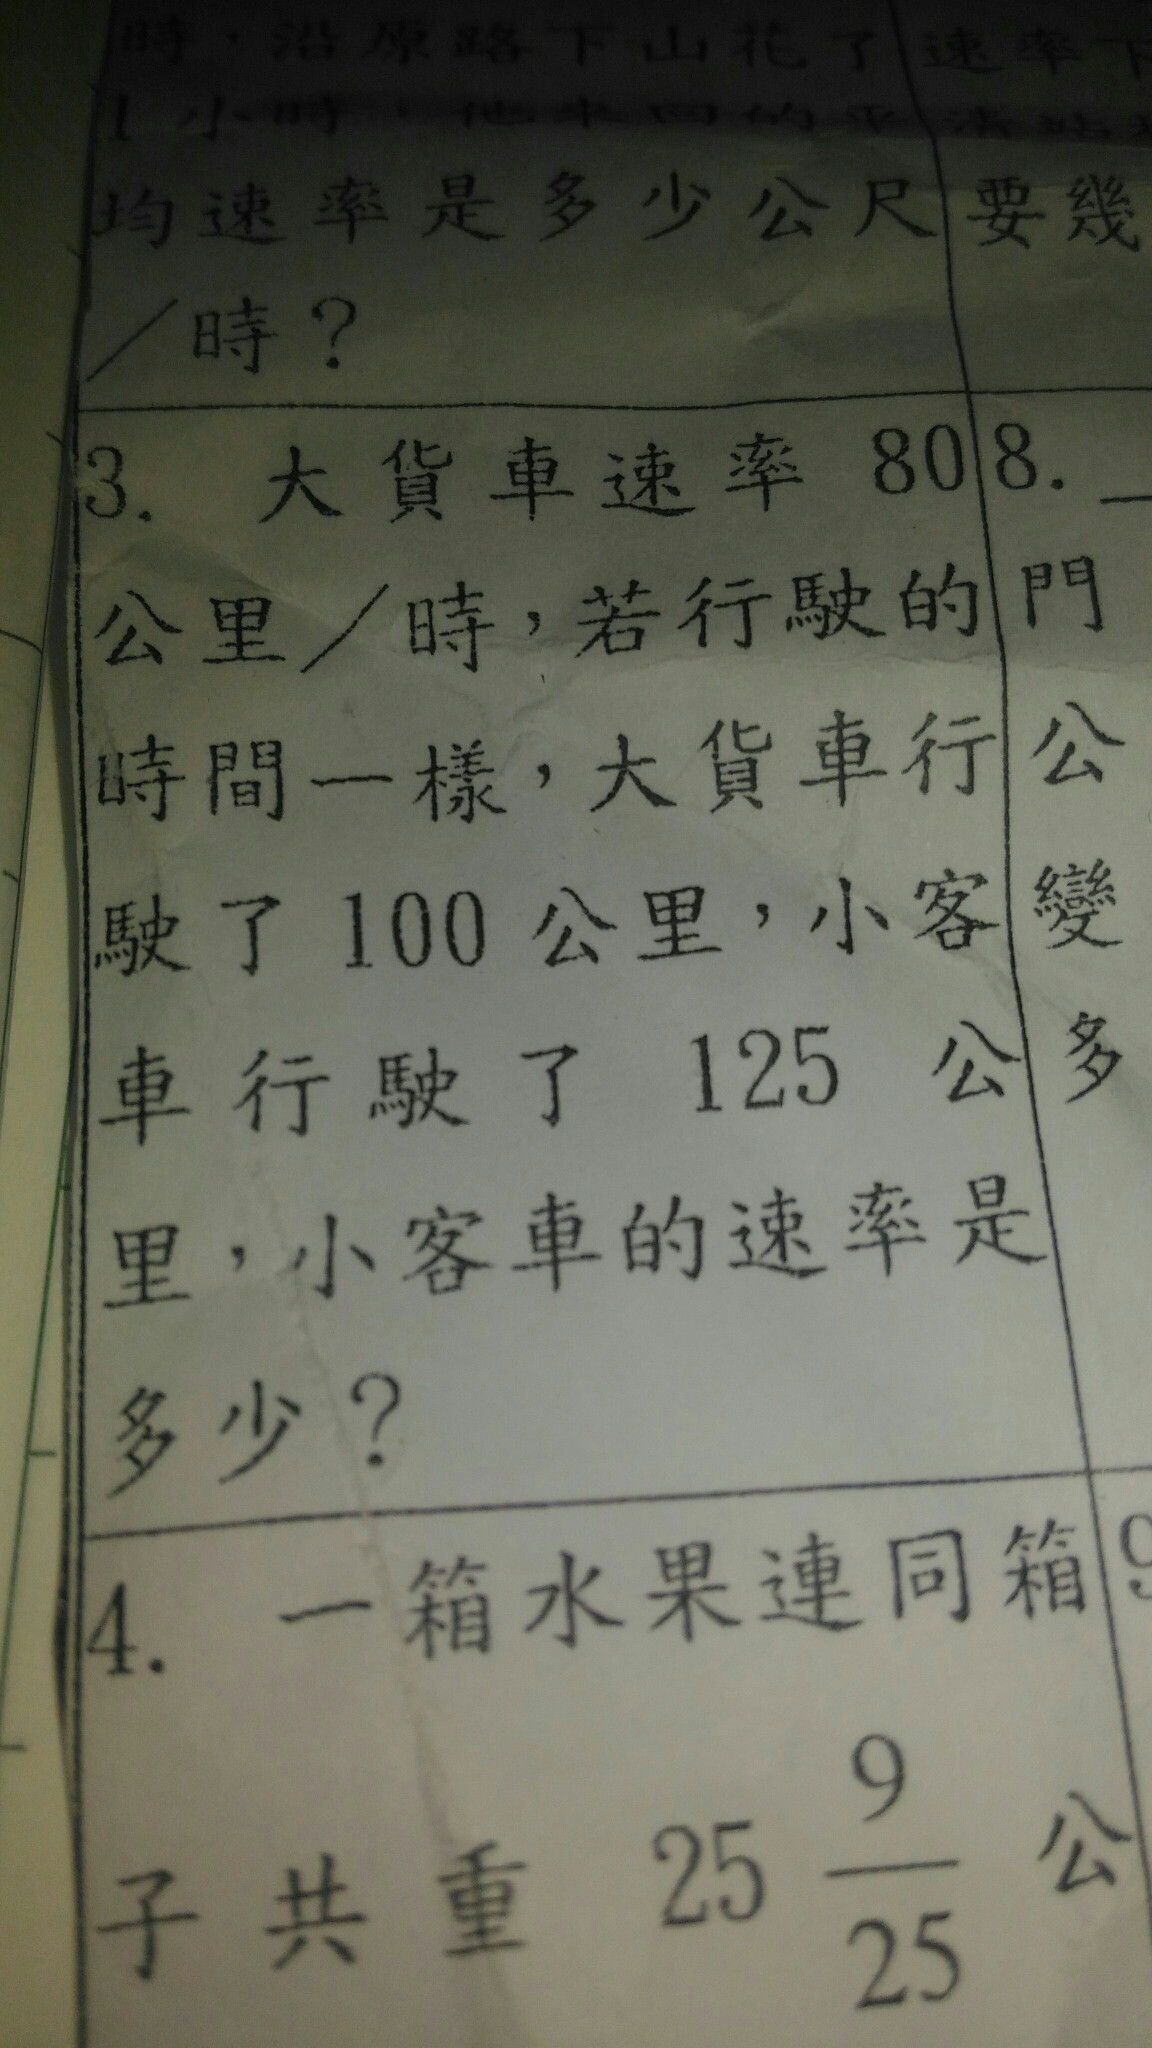 時，沿原路下山花了
1小時，他來回的平
均速率是多少公尺
／時？
3. 大貨車速率 80
公里／時，若行駛的
時間一樣，大貨車行
駛了 100 公里，小客
車行駛了 125 公
里，小客車的速率是
多少？
4. 一箱水果連同箱
子共重 25 9/25 公
速率
要幾
8.
門
公
變
多
9